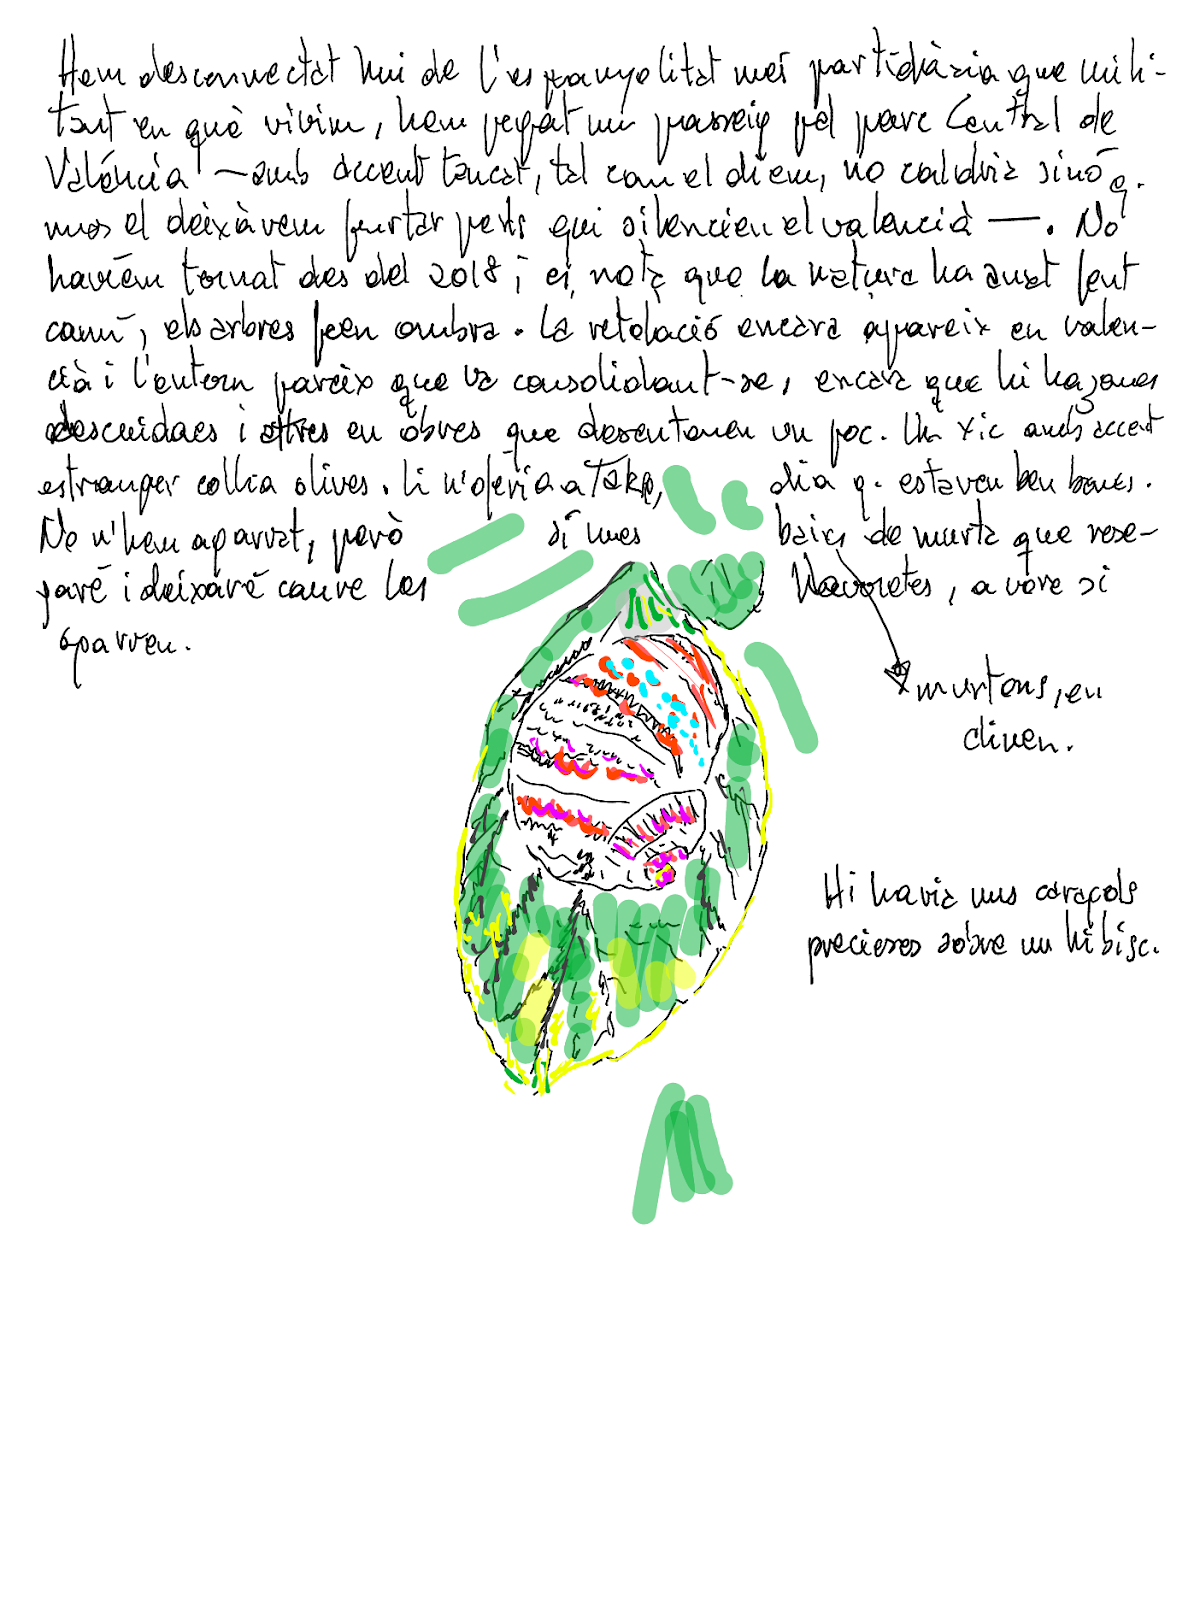 Hem desconnectat hui de l'espanyolitat més partidària que mili-
tant en què vivim, hem pegat un passeig pel parc Central de
Valéncia —amb accent tancat, tal com el diem, no caldria sinó q.
mos el deixàvem furtar pels qui silencien el valencià—. No
havíem tornat des del 2018 i es nota que la natura ha anat fent
camí, els arbres feen ombra. La retolació encara apareix en valen-
cià i l'entorn pareix que va consolidant-se, encara que hi ha zones
descuidaes i atres en obres que desentonen un poc. Un xic amb accent
estranger collia olives. Li n'oferia a dia q. estaven ben bones.
No n'hem aparrat, però sí unes baies de murta que rese-
garé i deixaré caure les llavoretes, a vore si
aparren.
murtons, en
diuen.
Hi havia uns caragols
preciosos sobre un hibisc.